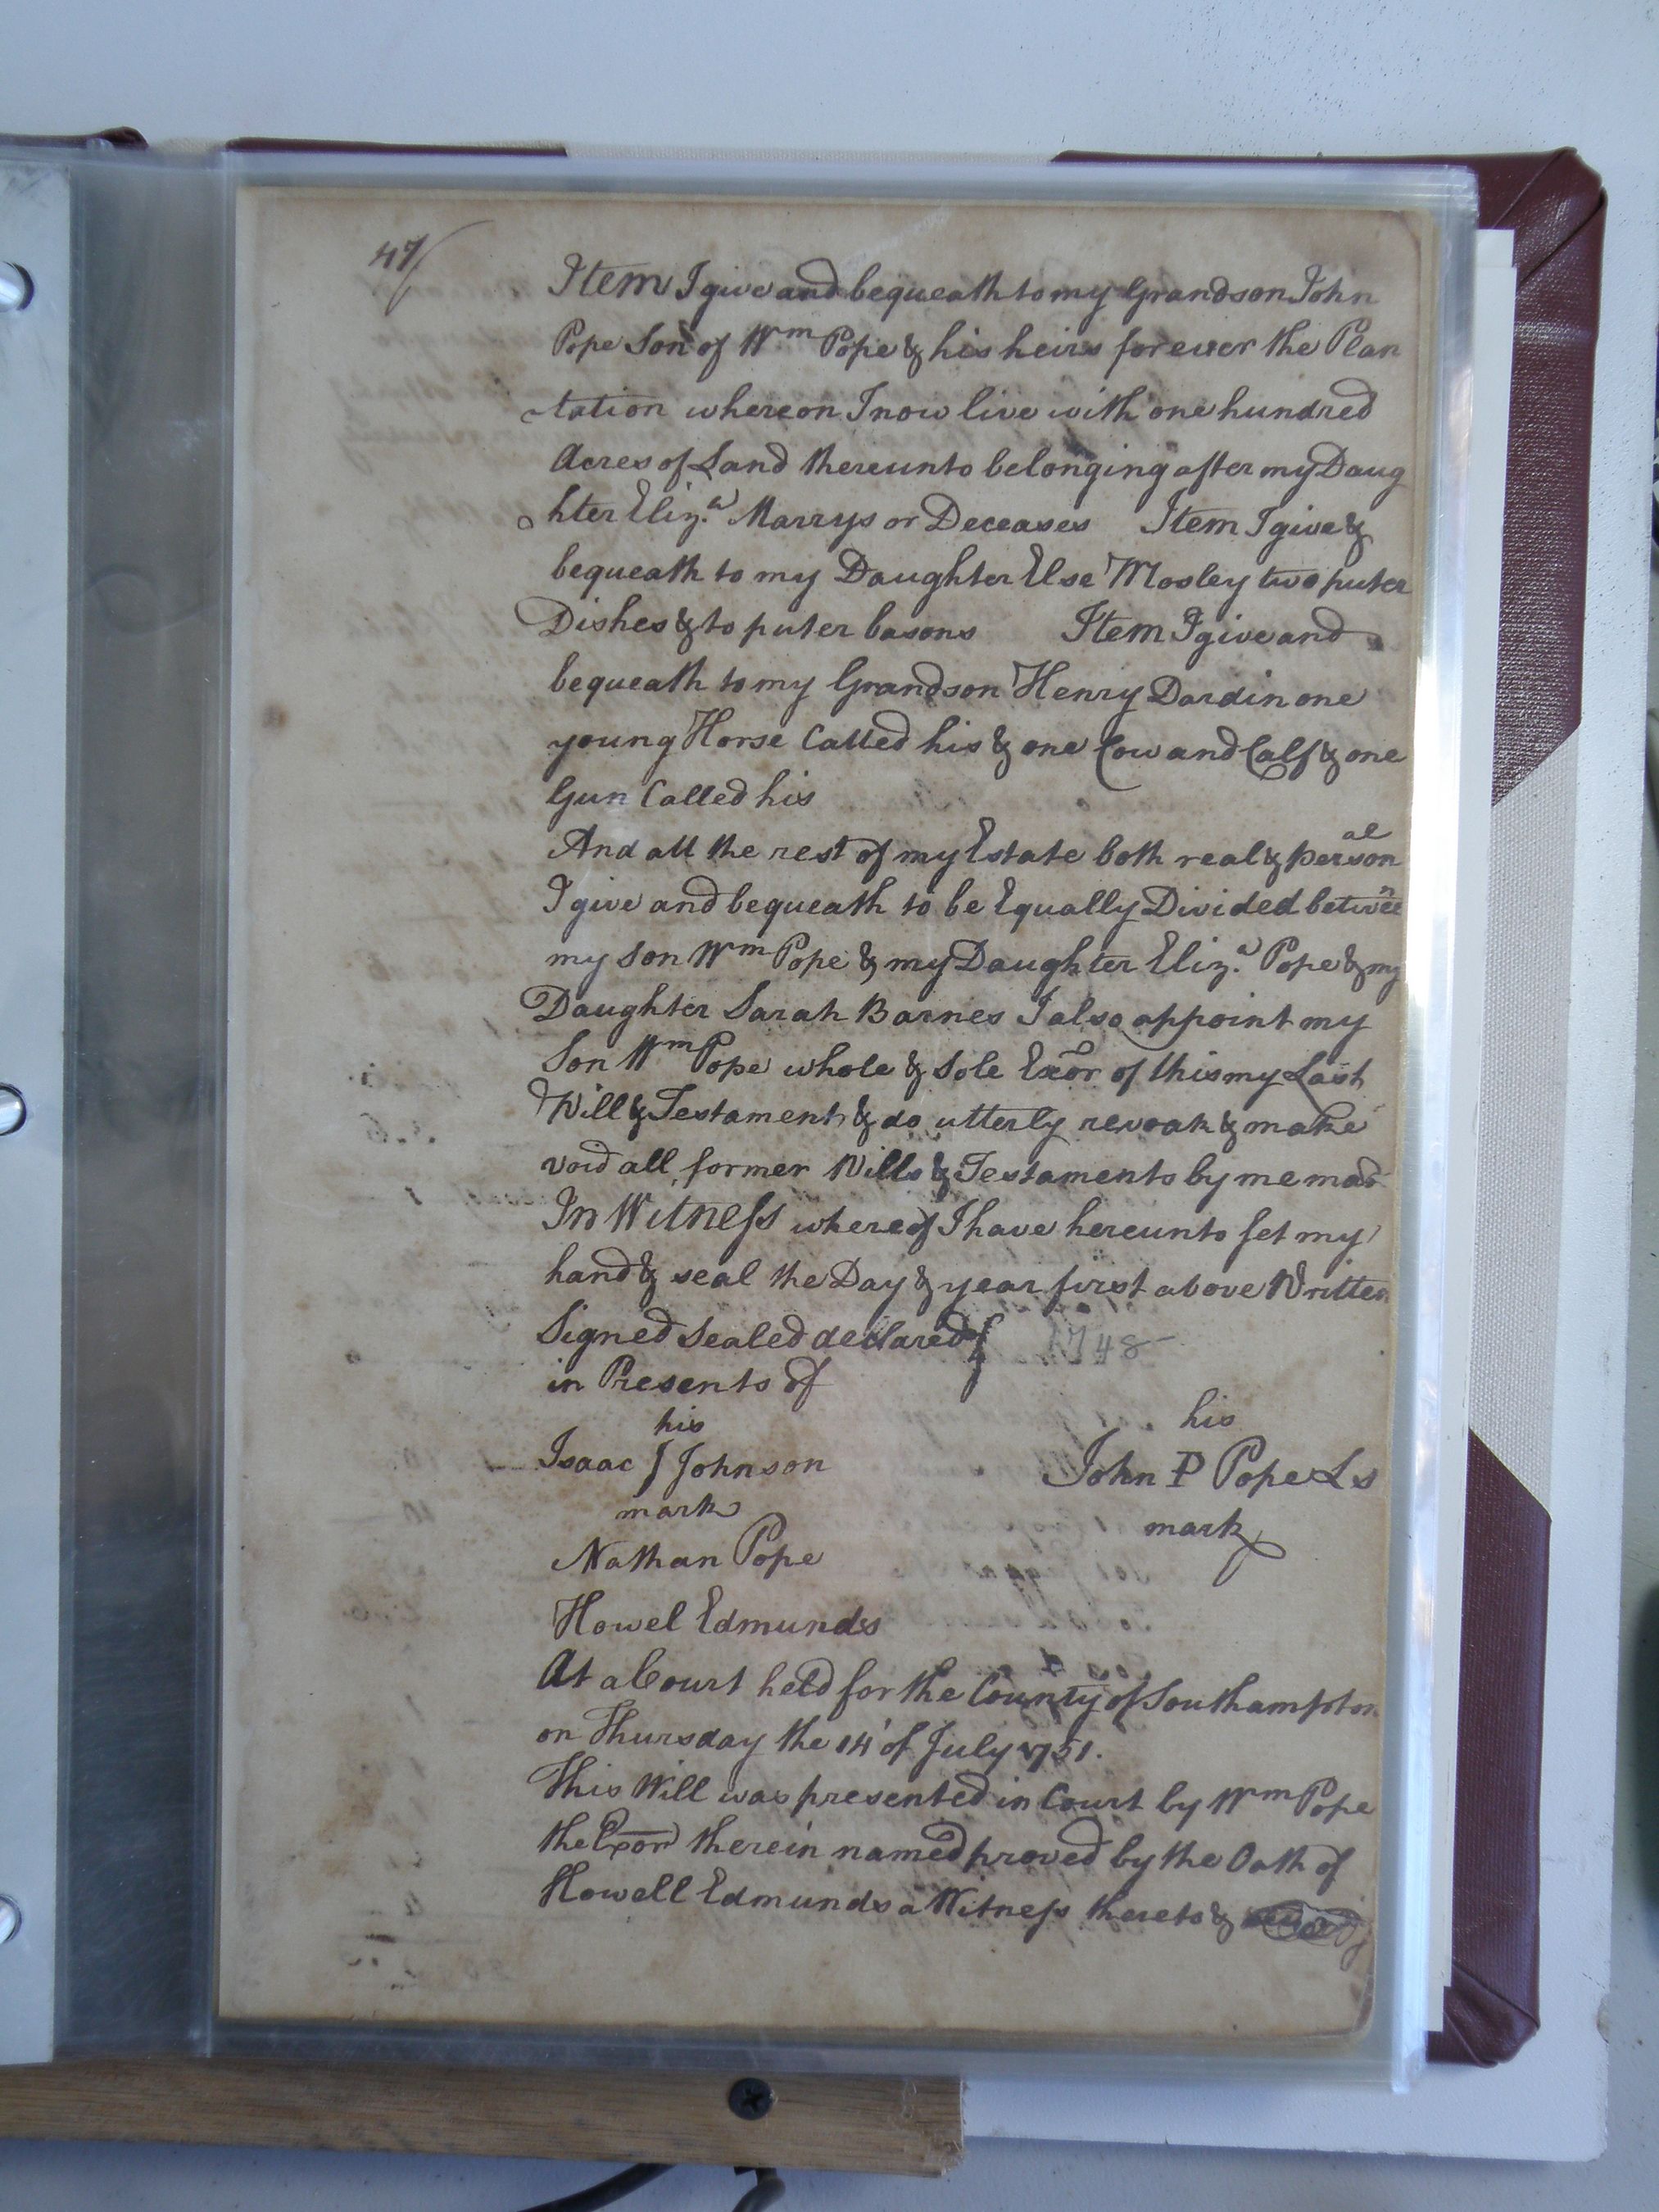 47/
Item I give and bequeath to my Grandson John
Pope Son of Wm Pope & his heirs forever the Plan
tation whereon I now live with one hundred
Acres of Land thereunto belonging after my Daug
hter Eliz.a Marrys or Deceases Item I give &
bequeath to my Daughter Else Mosley two puter
Dishes & to puter basons Item I give and
bequeath to my Grandson Henry Dardin one
young Horse Called his & one Cow and Calf & one
Gun Called his
And all the rest of my Estate both real & personal
I give and bequeath to be Equally Divided between
my son Wm Pope & my Daughter Eliz.a Pope & my
Daughter Sarah Barnes I also appoint my
Son Wm Pope whole & Sole Exor of this my Last
Will & Testament & do utterly revoak & make
void all former Wills & Testaments by me mad
In Witness whereof I have hereunto set my
hand & seal the Day & year first above Written
Signed Sealed declared 1748
in Presents of
his his
Isaac J Johnson John P Pope Ls
mark mark
Nathan Pope
Howel Edmunds
At a Court held for the County of Southampton
on Thursday the 14 of July 1751.
This Will was presented in Court by Wm Pope
the Exor therein named proved by the Oath of
Howell Edmunds a Witness thereto &